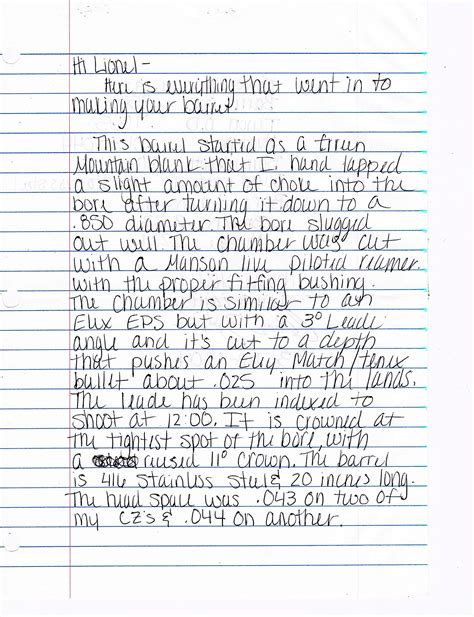 Hi Lionel-
Here is everything that went in to
making your barrel.
This barrel started as a Green
Mountain blank that I hand lapped
a slight amount of choke into the
bore after turning it down to a
.850 diameter. The bore slugged
out well. The chamber was cut
with a Manson live piloted reamer.
with the proper fitting bushing.
The chamber is similar to an
Eux EPS but with a 3° Leade
angle and it's cut to a depth
that pushes an Eley Match/tenex
bullet about .025 into the lands.
The leade has been indexed to
shoot at 12:00. It is crowned at
the tightest spot of the bore with
a recused 11° crown. The barrel
is 416 stainless steel & 20 inches long.
The head space was .043 on two of
my CZ's & .044 on another.